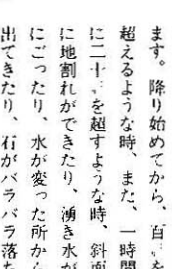 ます。降り始めてから、百ミを
超えるような時、また、一時間
に二十ミを超すような時、斜面
に地割れができたり、湧き水が
にごったり、水が変った所から
出てきたり、石がバラバラ落ち